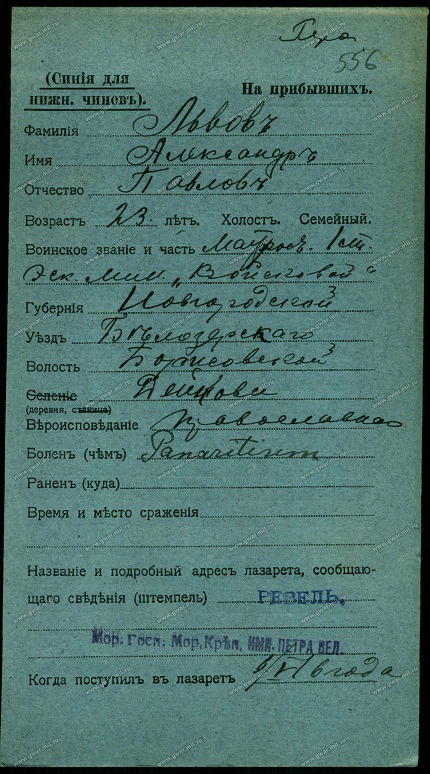 556
(Синія для
нижн. чиновъ).
На прибывшихъ.
Фамилія Львовъ
Имя Александръ
Отчество Павловъ
Возрастъ 23 лѣтъ. Холостъ. Семейный.
Воинское званіе и часть Матросъ. 1 ст.
Эск. Мин. „Войсковой“
Губернія Новгородской
Уѣздъ Бѣлозерскаго
Волость Борисовской
Селеніе
(деревня, станица)
Вѣроисповѣданіе православнаго
Боленъ (чѣмъ) Panaritium
Раненъ (куда)
Время и мѣсто сраженія
Названіе и подробный адресъ лазарета, сообщаю-
щаго свѣдѣнія (штемпель) РЕВЕЛЬ,
Мор. Госп. Мор. Крѣп. ИМП. ПЕТРА ВЕЛ.
Когда поступилъ въ лазаретъ года
www.gwar.mil.ru